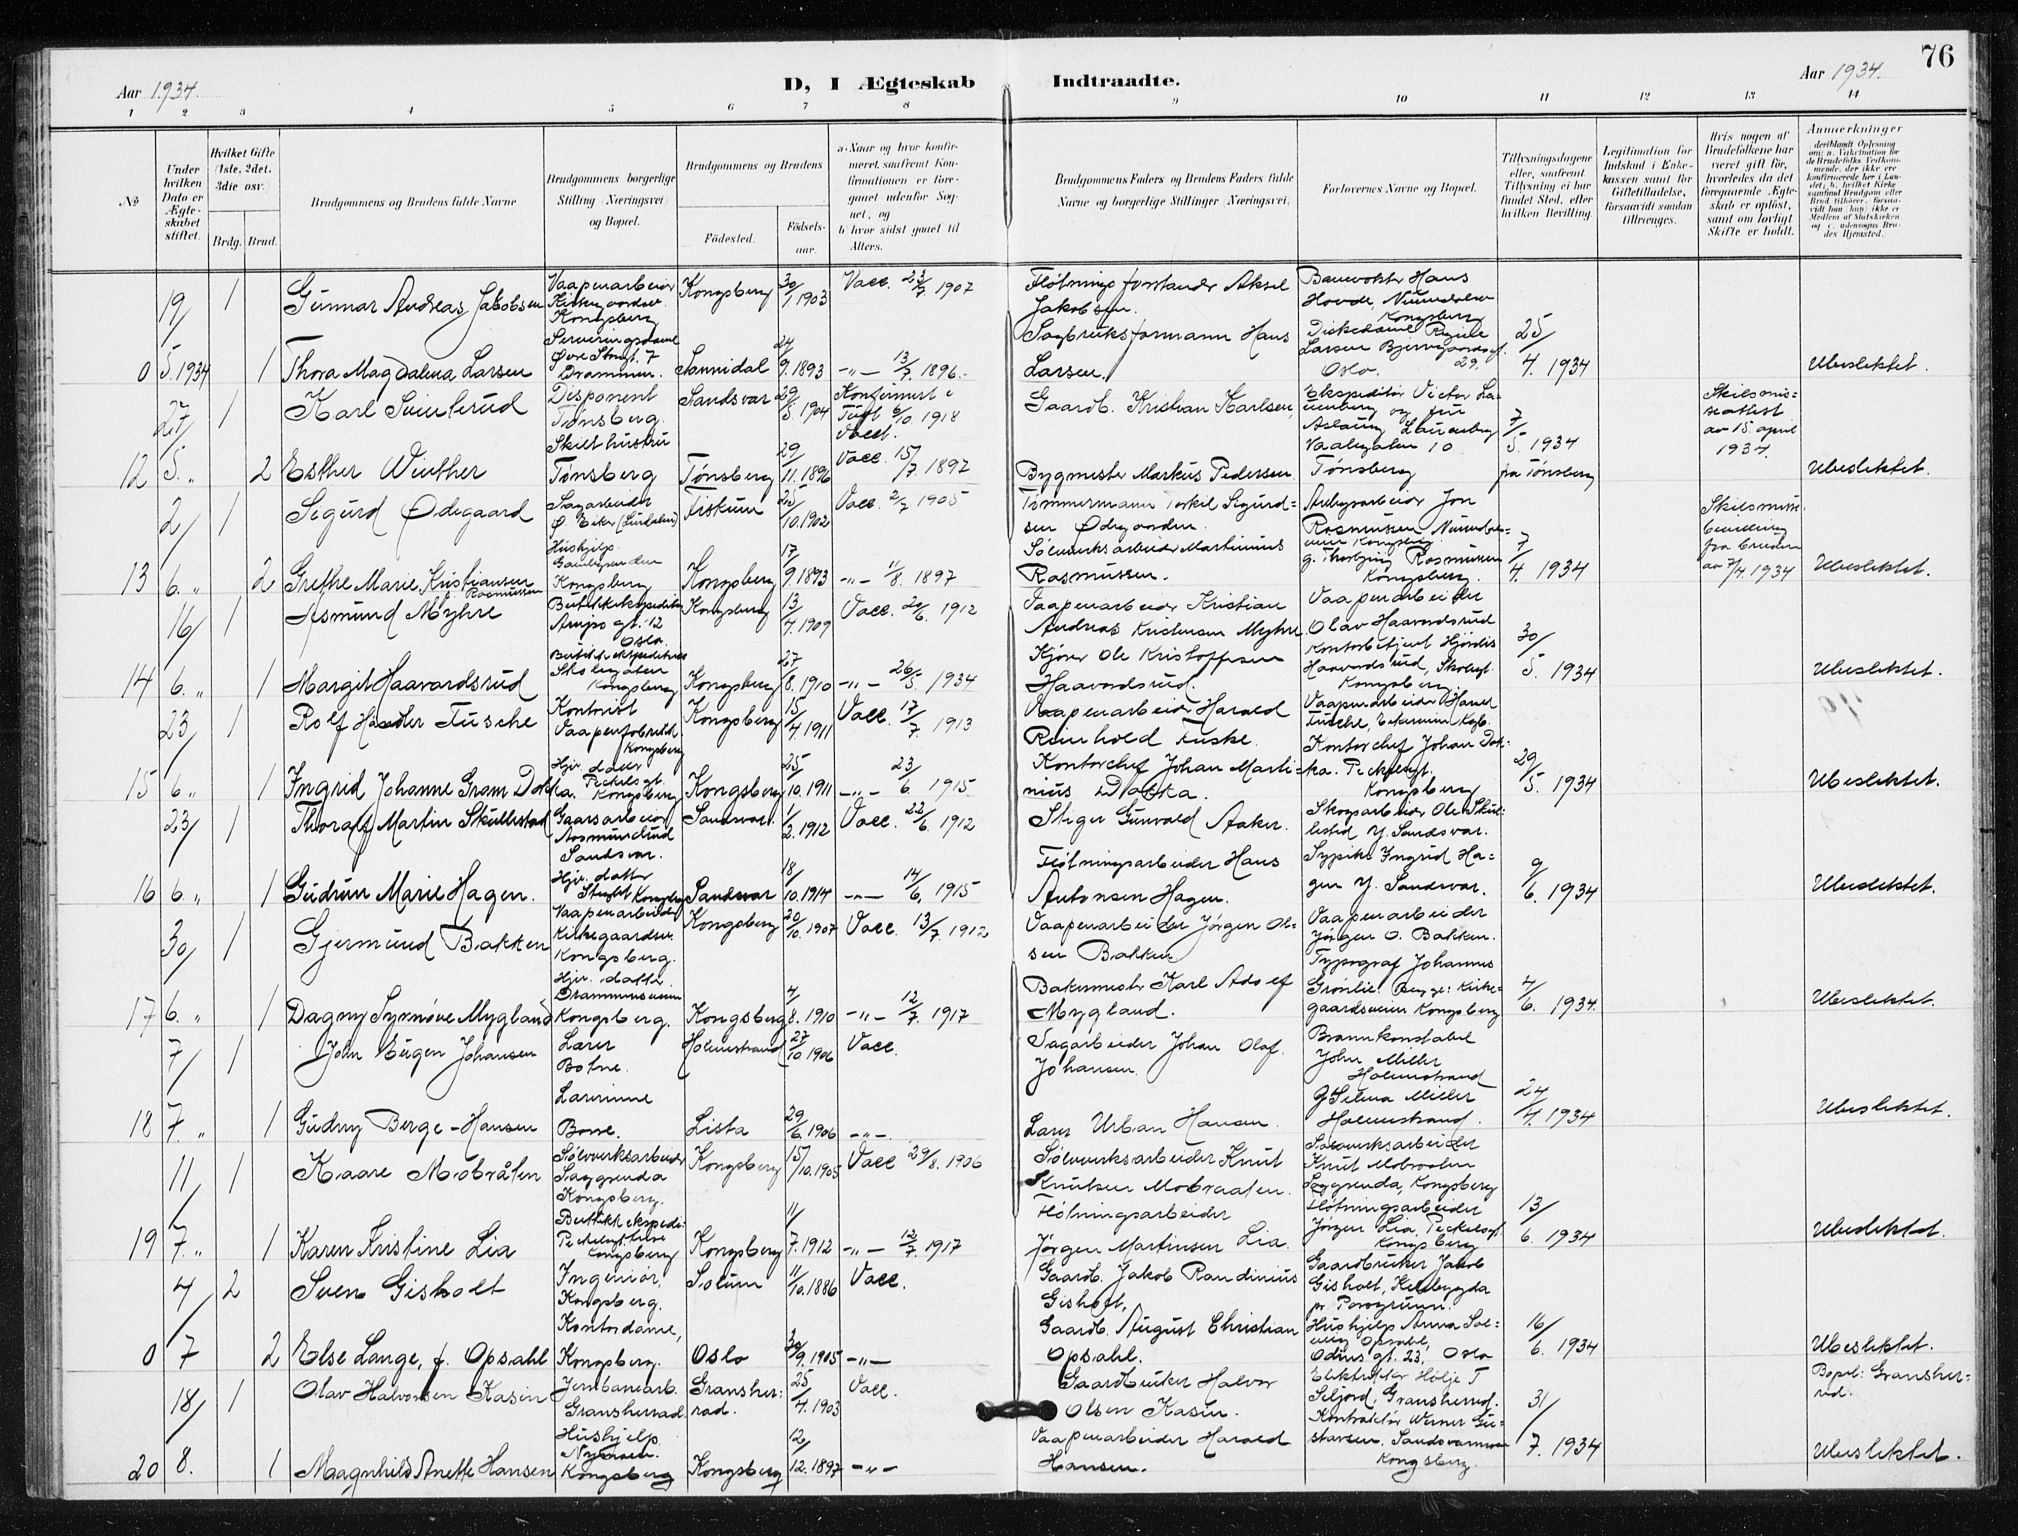 76
Aar 1934.
D, I Ægteskab Indtraadte.
Aar 1934.
1 2 3 4 5 6 7 8 9 10 11 12 13 14
No
Under hvilken Dato er Ægteskabet stiftet.
Hvilket Gifte (1ste, 2det, 3die osv.)
Brdg. Brud.
Brudgommens og Brudens fulde Navne
Brudgommens borgerlige Stilling (Næringsvei) og Bopæl.
Brudgommens og Brudens
Födested. Födselsaar.
a. Naar og hvor konfirmeret, saafremt Konfirmationen er foregaaet udenfor Sognet, og b. hvor sidst gaaet til Alters.
Brudgommens Faders og Brudens Faders fulde Navne og borgerlige Stillinger (Næringsvei).
Forlovernes Navne og Bopæl.
Tillysningsdagene eller, saafremt Tillysning ei har fundet Sted, efter hvilken Bevilling.
Legitimation for Indskud i Enkekassen samt for Giftetilladelse, forsaavidt saadan tiltrænges.
Hvis nogen af Brudefolkene har været gift för, hvorledes da det foregaaende Ægteskab er oplöst, samt om lovligt Skifte er holdt.
Anmærkninger
19/ 1 Gunnar Andreas Jakobsen Vaapenarbeider Kongsberg Kongsberg 30/1 1903 Vacc. 23/7 1907 Fløtningsformand Aksel Jakobsen. Banevokter Hans Hovde, Numedalsv. Kongsberg
0 5. 1934 1 Thora Magdalena Larsen Serveringsdame Øvre Storgt. 7 Drammen. Sannidal 24/9. 1893 -"- 13/7. 1896. Sagbruksformann Hans Larsen. Diskedame Larsen Oslo. 25/4. 1934 Ubeslektet.
27/ 1 Karl Svinterud Disponent Tønsberg. Sandsvær 29/5 1904 Konfirmert i Tuft 6/10 1918 Vacc. Gaardb. Kristian Karlsen, Ekspeditør Victor 7/5 1934 Skilsmisseattest av 15 april 1934.
12 5. " 2 Esther Winther Skilt hustru Tønsberg Tønsberg 29/11. 1896 Vacc. 15/7. 1897 Bygmester Markus Pedersen. Tønsberg fra Tønsberg Ubeslektet.
2/ 1 Sigurd Ødegaard Sagarbeider Ø. Eiker Fiskum 25/10. 1902 Vacc. 2/7 1905 Tømmermann Torkil Sigurdsen Ødegaarden. Anlegsarbeider Jon Rasmussen
13 6. " 2 Grethe Marie Kristiansen Rasmussen Hushjelp Kongsberg Kongsberg 17/9. 1893 -"- 11/8. 1897 Sølverksarbeider Martinius Rasmussen. Rasmussen Kongsberg. 7/4. 1934 Skilsmissebevilling fra bruden av 7/4. 1934 Ubeslektet.
16/ 1 Asmund Myhre Oslo. Kongsberg 13/4. 1909 Vacc. 20/6. 1912 Vaapenarbeider Kristian Andreas Kristensen Myhre Vaapenarbeider Olav Haavardsrud
14 6. " 1 Margit Haavardsrud Skolegaten Kongsberg Kongsberg 27/8. 1910 -"- 26/5. 1934 Kjører Ole Kristoffersen Haavardsrud. Kontorbetjent Hjørdis Haavardsrud, Skolegt. Kongsberg 30/5. 1934 Ubeslektet.
23/ 1 Rolf Harder Tusche Kontorist Vaapenfabrikk Kongsberg Kongsberg 15/4. 1911 Vacc. 17/7. 1913 Vaapenarbeider Harald Reinhold Tuske. Vaapenarbeider Harald Tusche,
15 6. " 1 Ingrid Johanne Gram Dokka. Hjv. datter Peckelsgt. Kongsberg Kongsberg 25/10. 1911 -"- 23/6. 1915 Kontorchef Johan Martinius Dokka. Kontorchef Johan Dokka. Peckelsgt. Kongsberg 29/5. 1934 Ubeslektet.
23/ 1 Thoralf Martin Skullestad Gaardsarbeider Aasmundrud Sandsvær. Sandsvær. 1/2. 1912 Vacc. 22/6. 1912 Stiger Gunvald Aaker. Skogsarbeider Ole Skullestad Y. Sandsvær.
16 6. " 1 Gudrun Marie Hagen. Hjv. datter Kongsberg Sandsvær 18/10. 1914 -"- 14/6. 1915 Fløtningsarbeider Hans Antonsen Hagen. Sypike Ingrid Hagen Y. Sandsvær. 9/6. 1934 Ubeslektet.
30/ 1 Gjermund Bakken Vaapenarbeider Kirkegaardsv. Kongsberg. Kongsberg 20/10. 1907 Vacc. 13/7. 1912 Vaapenarbeider Jørgen Olsen Bakken Vaapenarbeider Jørgen O. Bakken.
17 6. " 1 Dagny Synnøve Mygland Hjv. datter Drammensveien Kongsberg. Kongsberg 4/8. 1910 -"- 12/7. 1917 Bakermester Karl Adolf Mygland. Typograf Johannes Grønlie. Begge: Kirkegaardsveien Kongsberg 4/6. 1934. Ubeslektet.
7/ 1 John Eugen Johansen Lærer Botne. Holmestrand 27/10. 1906 Vacc. Sagarbeider Johan Olaf Johansen. Brannkonstabel John Miller Holmestrand
18 7. " 1 Gudny Berge-Hansen Lærerinne Borre. Lista 29/6. 1906 -"-. Lærer Urban Hansen. Selma Miller Holmestrand. 24/4. 1934 Ubeslektet.
11/ 1 Kaare Mobråten Sølvverksarbeider Saggrenda Kongsberg. Kongsberg 15/10. 1905 Vacc 29/8. 1906 Sølvverksarbeider Knut Knutsen Mobraaten. Sølvverksarbeider Knut Mobraaten Saggrenda, Kongsberg
19 7. " 1 Karen Kristine Lia Butikkekspeditrise Kongsberg Kongsberg 11/7. 1912 -"- 12/7. 1917 Fløtningsarbeider Jørgen Martinsen Lia. Fløtningsarbeider Jørgen Lia, Peckelsgt. Kongsberg 13/6. 1934 Ubeslektet.
4/ 2 Sven Gisholt Ingeniør, Kongsberg. Solum 11/10. 1886 Vacc. Gaardb. Jakob Randinius Gisholt, Gaardbruker Jacob Gisholt, Kilebygda pr. Porsgrunn.
0 7 2 Else Lange, f. Opsahl Kontordame, Kongsberg. Oslo 30/9. 1905 -"- Gaardb. August Christian Opsahl. Hushjelp Anna Solveig Opsahl, Odins gt. 23, Oslo 16/6. 1934 Ubeslektet.
18/ 1 Olav Halvorsen Kasin Jernbanearb. Gransherrad. Gransherrad. 25/4. 1903 Vacc. Gaardbruker Halvor Olsen Kasin. Elektriker Helje T Seljord, Gransherred. Bopel: Gransherrad.
20 8. 1 Magnhild Anette Hansen Hushjelp Nymoen. Kongsberg Kongsberg 12/12. 1897 -"- Vaapenarbeider Harald Hansen. Kontraktør Werner Gustavsen. Sandsværveien Kongsberg. 31/7. 1934 Ubeslektet.